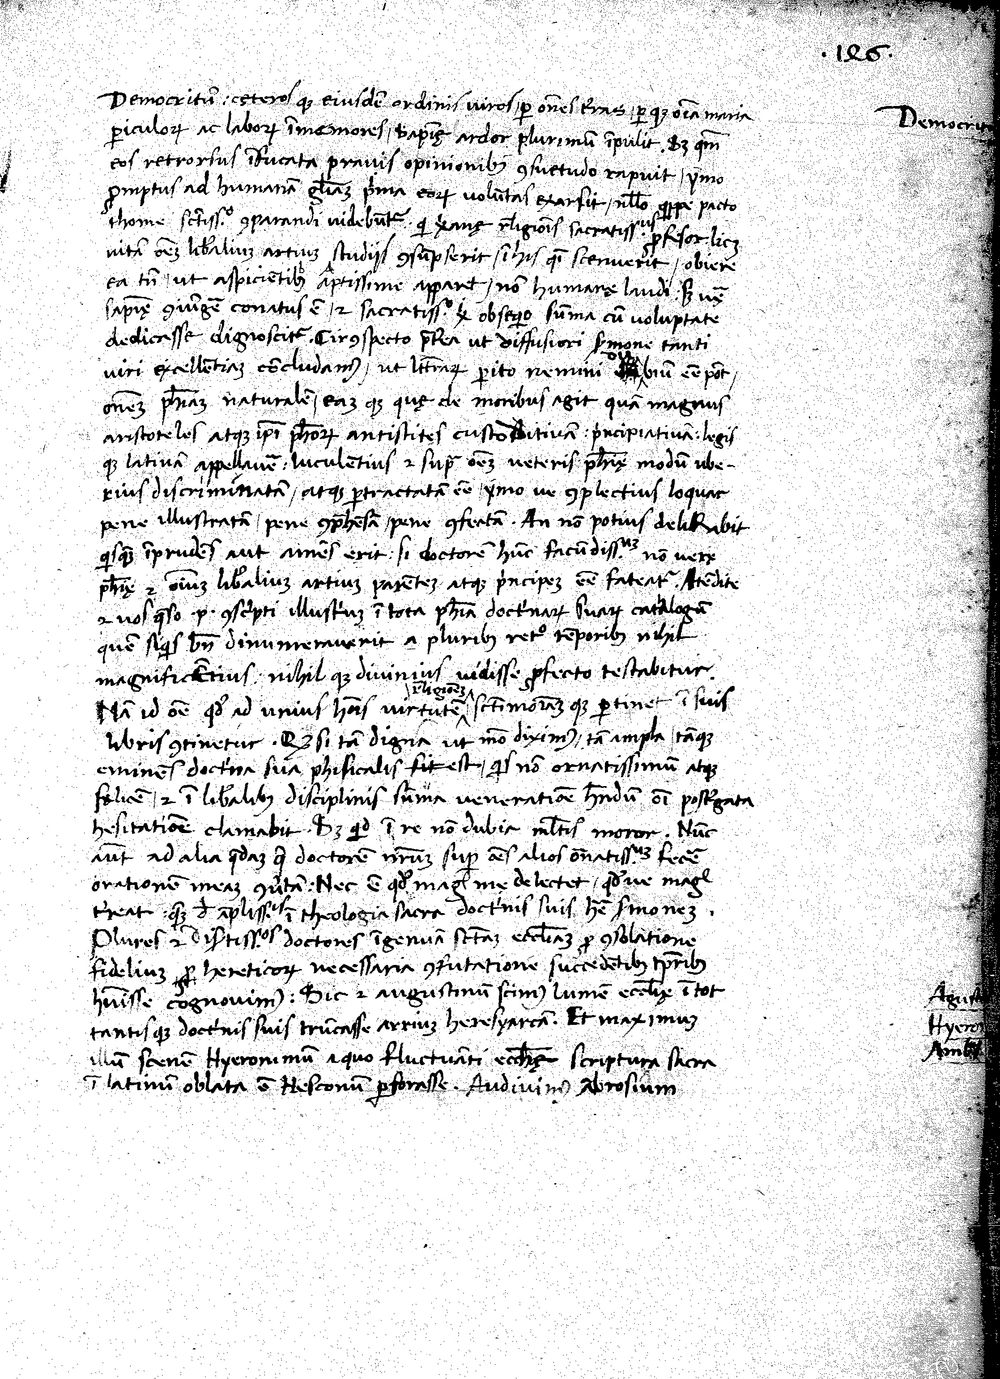 ·126·
Democritū : ceteros q; eiusdē ordinis uiros, ꝑ om̄es terras, ꝑ q; oīa maria
ꝑiculoꝝ ac laboꝝ īmemores, sapīe ardor plurimū īpulit. Sꝫ qm̄
eos retrorsus īfucata prauis opinionibꝰ ꝯsuetudo rapuit, ymo
promptus ad humanā gl̄iaꝫ pīma eoꝝ voluntas exarsit, nll̄o pacto
thome sctīss.º ꝯparandi uidebunt᷑. qi xp̄ane rēligiōis sacratiss.us ꝓfesor licꝫ
uitā oēꝫ lib̄aliuꝫ artiuꝫ studijs ꝯsūpserit,
ea tn̄, ut aspicientibꝰ aptissime apparet, nō humane laudi. sꝫ ue
sapīe ꝯiūgē conatus ē, ⁊ sacratiss.º xp̄i obseqio sūma cū voluptate
dedicasse dignoscit᷑. Circūspecto p̄terea ut diffusiori s̄mone tanti
uiri excellentiaꝫ cōcludamꝰ, ut lr̄aꝝ perito nemini dubiū eē pōt,
om̄eꝫ ph̄iaꝫ naturalē, eaꝫ q; que de moribus agit quā magnus
aristoteles atq; ip̄i ph̄oꝝ antistites custoditiuā : p̄ncipiatiuā : legis
q; latiuā appellauē : luculentius ⁊ sup̄ oēꝫ ueteris ph̄ie modū ube-
rius discriminatā, atq; ꝑtractatā eē, ymo ue ꝯplectius loquar
pene illustratā, pene ꝯp̄hēsā, pene ꝯfectā. An nō potius delirabit
qsq̄ īprudēs aut amēs erit. si doctorē hūc facundiss.uꝫ nō uere
ph̄ie ⁊ oīuꝫ lib̄aliuꝫ artiuꝫ parenteꝫ atq; p̄ncipeꝫ eē fateat᷑. Atēdite
⁊ uos q̄so .p. ꝯscripti illustriuꝫ ī tota ph̄ia doctrīnaꝝ suaꝝ catalogū
quē siqis bn̄ dinumerauerit a pluribꝰ retº tēporibꝰ nihil
magnificētius, nihil q; diuinius uidisse ꝓfecto testabitur.
Nā id oē qd̄ ad unius hōis uirtutē religiōeꝫ sctīmōiāꝫ q; ꝑtinet ī suis
libris ꝯtinetur. Qꝫ si tā digna ut mō diximꝰ, tā ampla, tāq;
eminēs doctrīna sua phisicalis sit est, qis nō ornatissimū atq;
felicē, ⁊ ī lib̄alibꝰ disciplinis sūma ueneratiōe hn̄dū oī postgata
hesitatiōe clamabit. Sꝫ qid ī re nō dubia ml̄tis moror. Nūc
aūt ad alia q̄daꝫ doctorē nr̄uꝫ sup̄ oēs alios ornatiss.uꝫ fecē
orationē meaꝫ ꝯūtā. Nec ē qd̄ magl̄ me delectet, qd̄ ue magl̄
terreat. q̄ꝫ d̄ āpliss.is ī theologia sacra doctrīnis suis hr̄e s̄moneꝫ.
Plures ⁊ disertiss.os doctores īgenuā sctāꝫ eccl̄iaꝫ ꝓ ꝯsolatione
fideliuꝫ ꝓq; hereticoꝝ necessaria ꝯfutatione succedētibꝰ tp̄ribꝰ
habuisse cognouimꝰ : Sic ⁊ augustinū scimꝰ lumē eccl̄ie ī tot
tantisq; doctrīnis suis trūcasse arriuꝫ heresyarcā. Et maximuꝫ
illū senē Hyeronimū a quo fluctuāti eccl̄ie scriptura sacra
ī latinū oblata ē Nesconū ꝑforasse. Audiuimꝰ Ābrosium
Democrit
Agust
Hyero
Amb